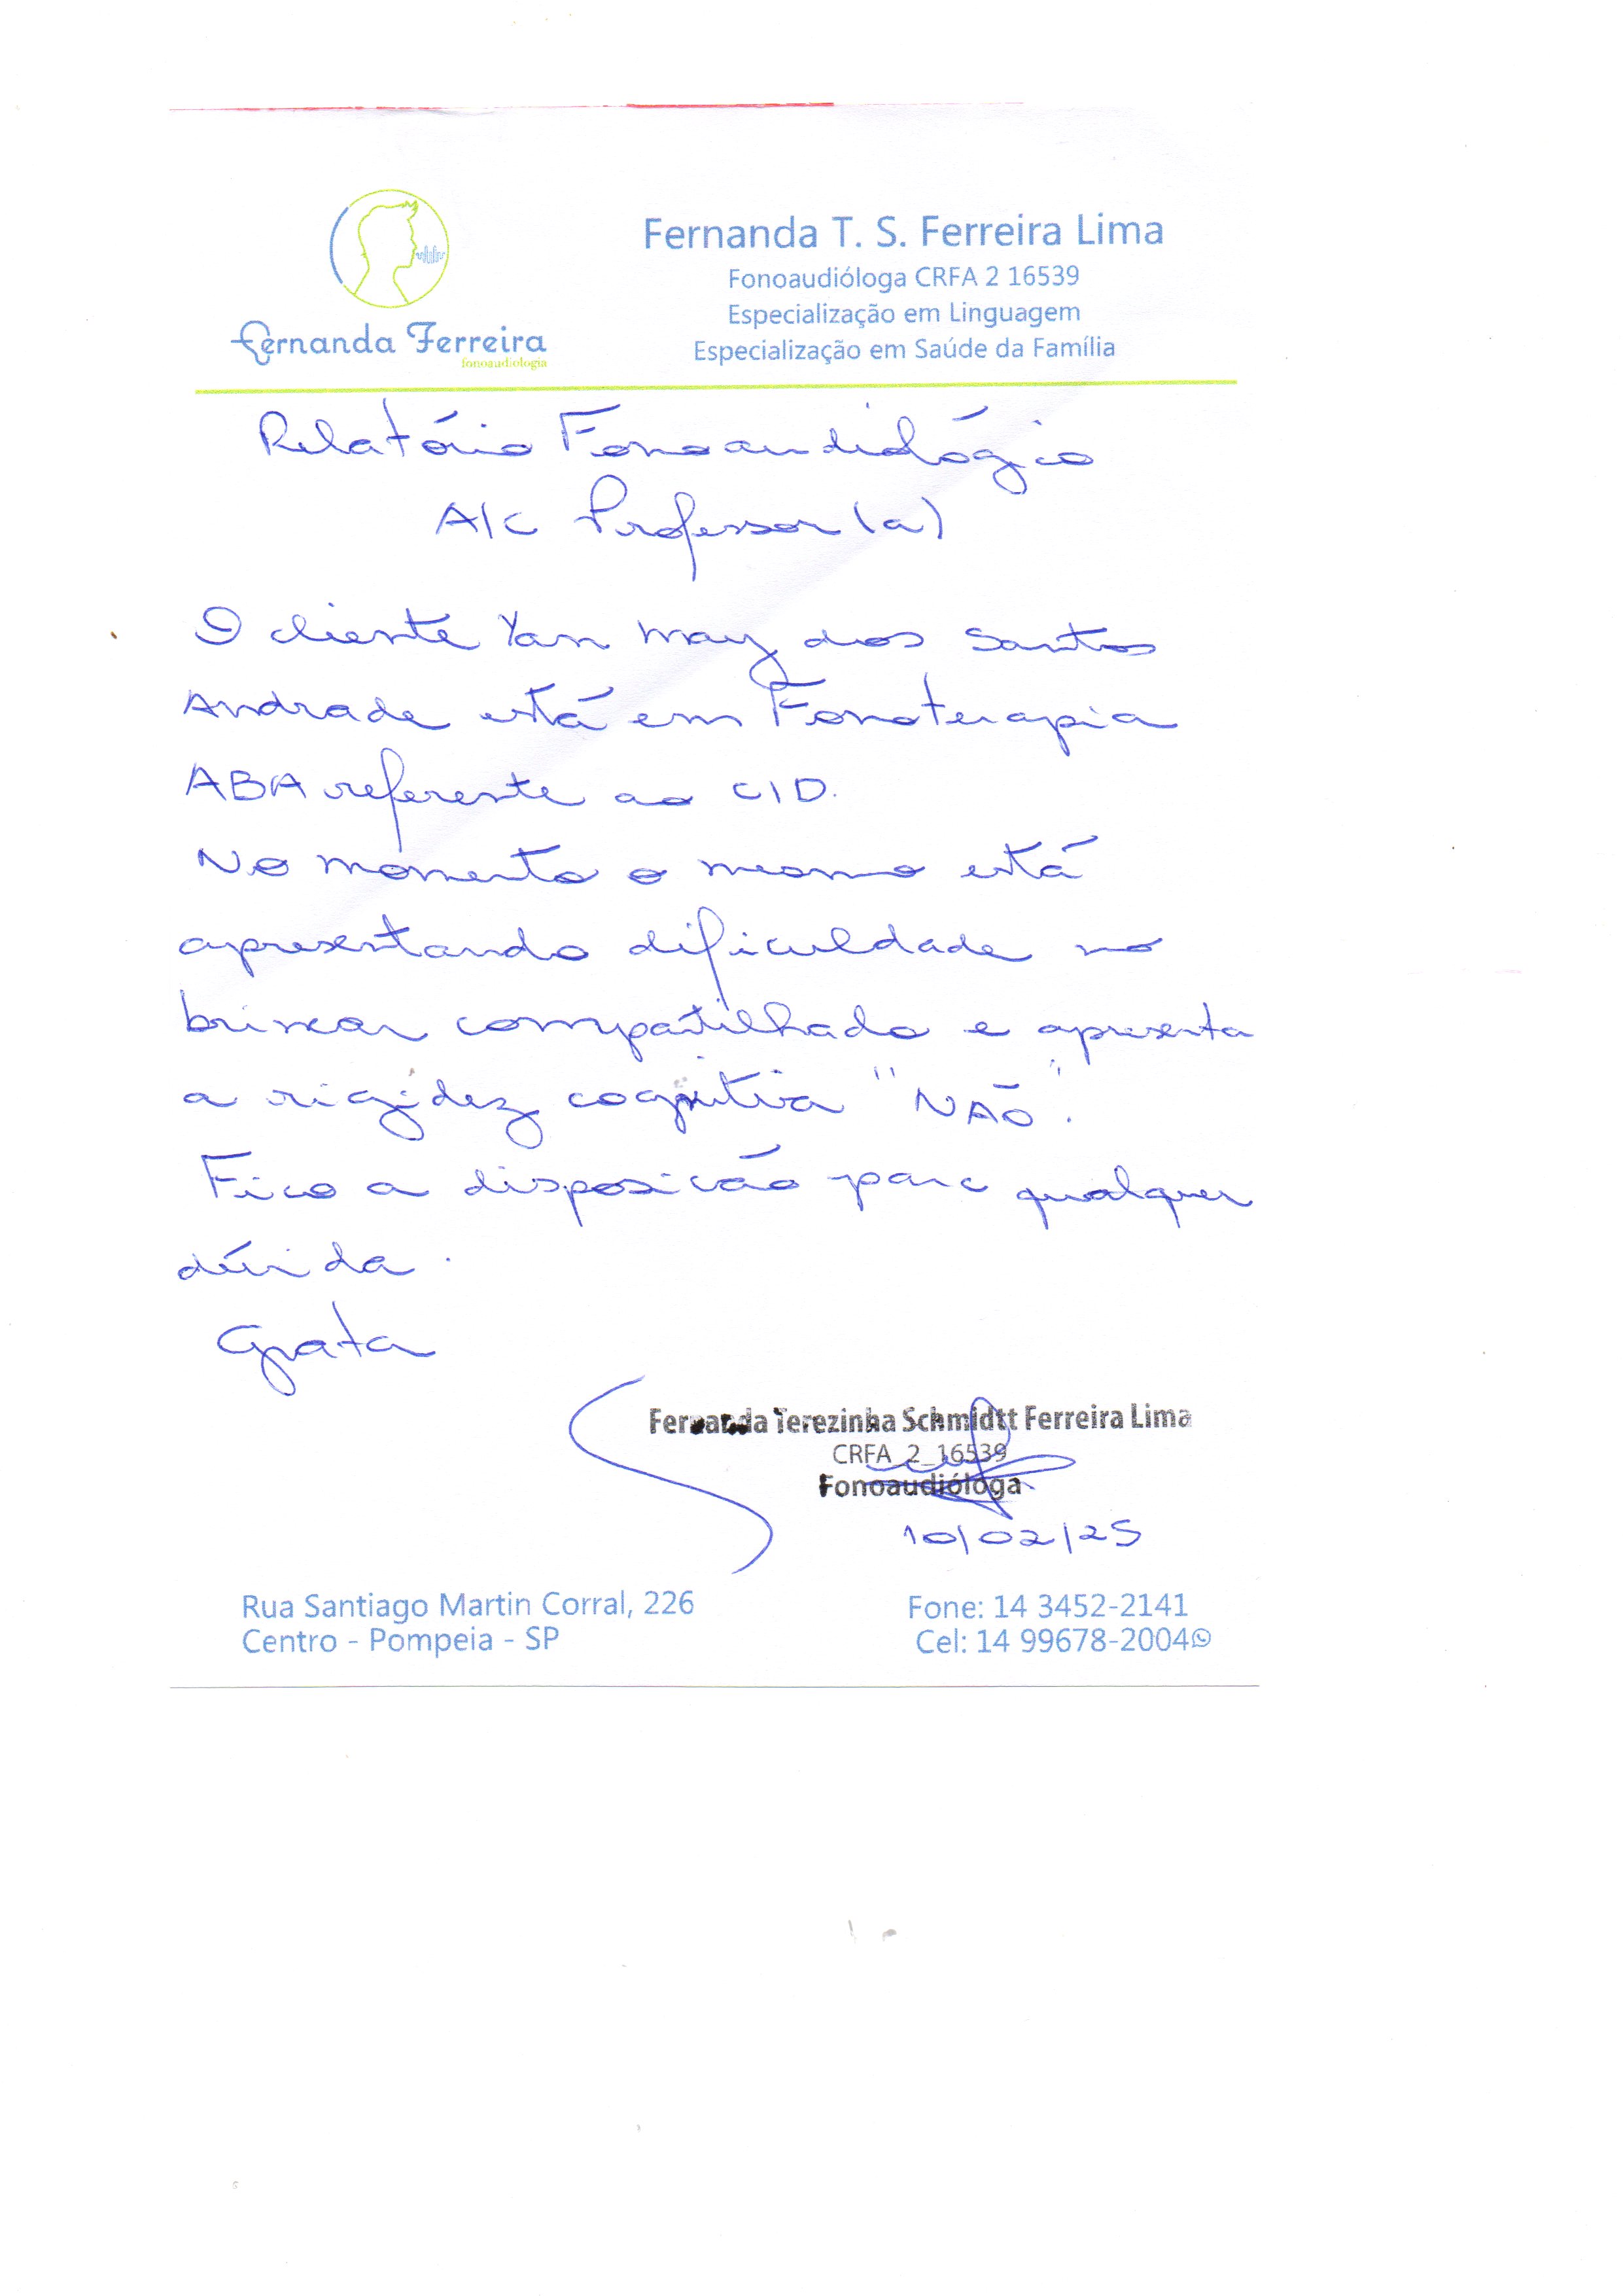 Fernanda Ferreira
fonoaudiologia
Fernanda T. S. Ferreira Lima
Fonoaudióloga CRFA 2 16539
Especialização em Linguagem
Especialização em Saúde da Família
Relatório Fonoaudiológico
A/C Professor(a)
O cliente Yan May dos Santos
Andrade está em Fonoterapia
ABA referente ao CID.
No momento o mesmo está
apresentando dificuldade no
brincar compartilhado e apresenta
a rigidez cognitiva "NÃO".
Fico a disposicão para qualquer
dúvida.
Grata
Fernanda Terezinha Schmidtt Ferreira Lima
CRFA 2_16539
Fonoaudióloga
10/02/25
Rua Santiago Martin Corral, 226
Centro - Pompeia - SP
Fone: 14 3452-2141
Cel: 14 99678-2004